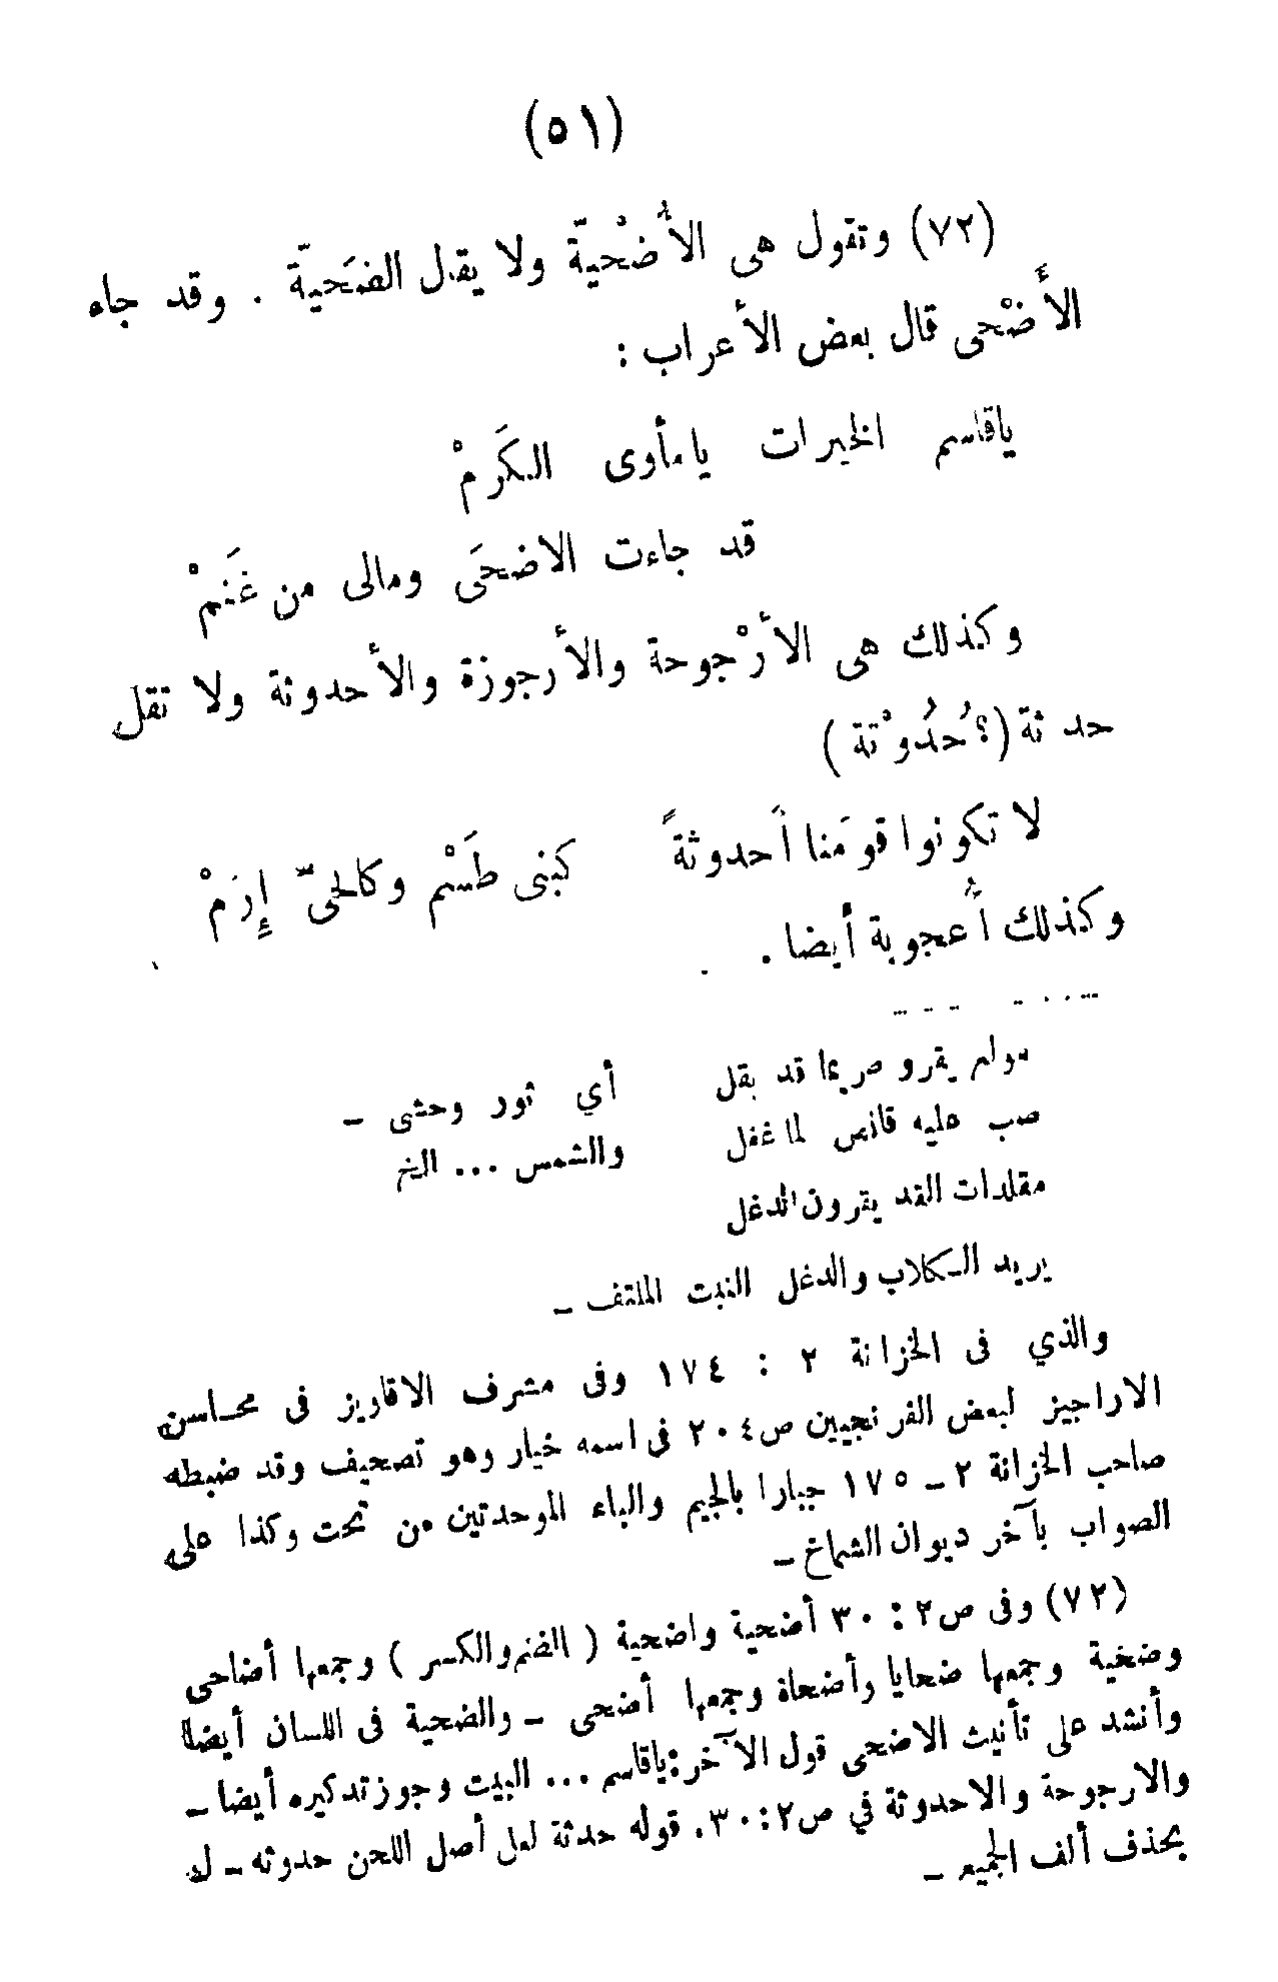 (٥١)
(٧٢) وتقول هى الأُضْحيّة ولا يقال الضَحيّة . وقد جاء
الأَضْحى قال بعض الأعراب :
ياقاسم الخيرات يامأوى الكَرمْ
قد جاءت الاضحَى ومالى من غَنمْ
وكذلك هى الأرْجوحة والأرجوزة والأحدوثة ولا تقل
حدثة (؟حُدُوْثة )
لا تكونوا قومَنا أحدوثةً كبنى طَسْم وكالحىّ إِرَمْ
وكذلك أُعجوبة أيضا .
مولم يقرو صريما قد بقل أي ثور وحشى ـ
صب عليه قانص لما غفل والشمس ... الخ
مقلدات القد يقرون الدغل
يريد الكلاب والدغل النبت الملتف ـ
والذي فى الخزانة ٢ : ١٧٤ وفى مشرف الاقاريز فى محاسن
الاراجيز لبعض الفرنجيين ص٢٠٤ فى اسمه خيار وهو تصحيف وقد ضبطه
صاحب الخزانة ٢ ـ ١٧٥ جبارا بالجيم والباء الموحدتين من تحت وكذا على
الصواب بآخر ديوان الشماخ ـ
(٧٢) وفى ص٢ : ٣٠ أضحية واضحية ( الضم والكسر ) وجمعها أضاحى
وضحية وجمعها ضحايا وأضحاة وجمعها أضحى ـ والضحية فى اللسان أيضا
وأنشد على تأنيث الاضحى قول الآخر:ياقاسم ... البيت وجوز تدكيره أيضا ـ
والارجوحة والاحدوثة في ص٣٠:٢. قوله حدثة لعل أصل اللحن حدوثه ـ ك
بحذف ألف الجميع ـ